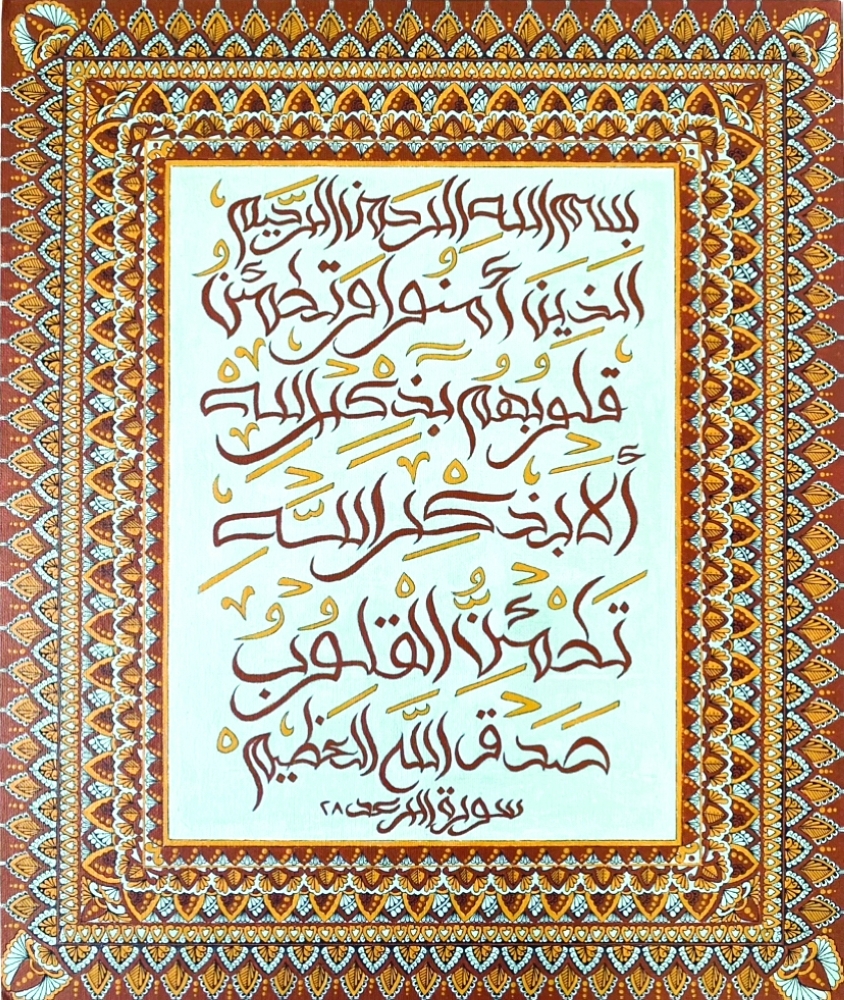 بسم الله الرحمن الرحيم
الذين أمنوا وتطمئن
قلوبهم بذكر الله
ألا بذكر الله
تطمئن القلوب
صدق الله العظيم
سورة الرعد ٢٨